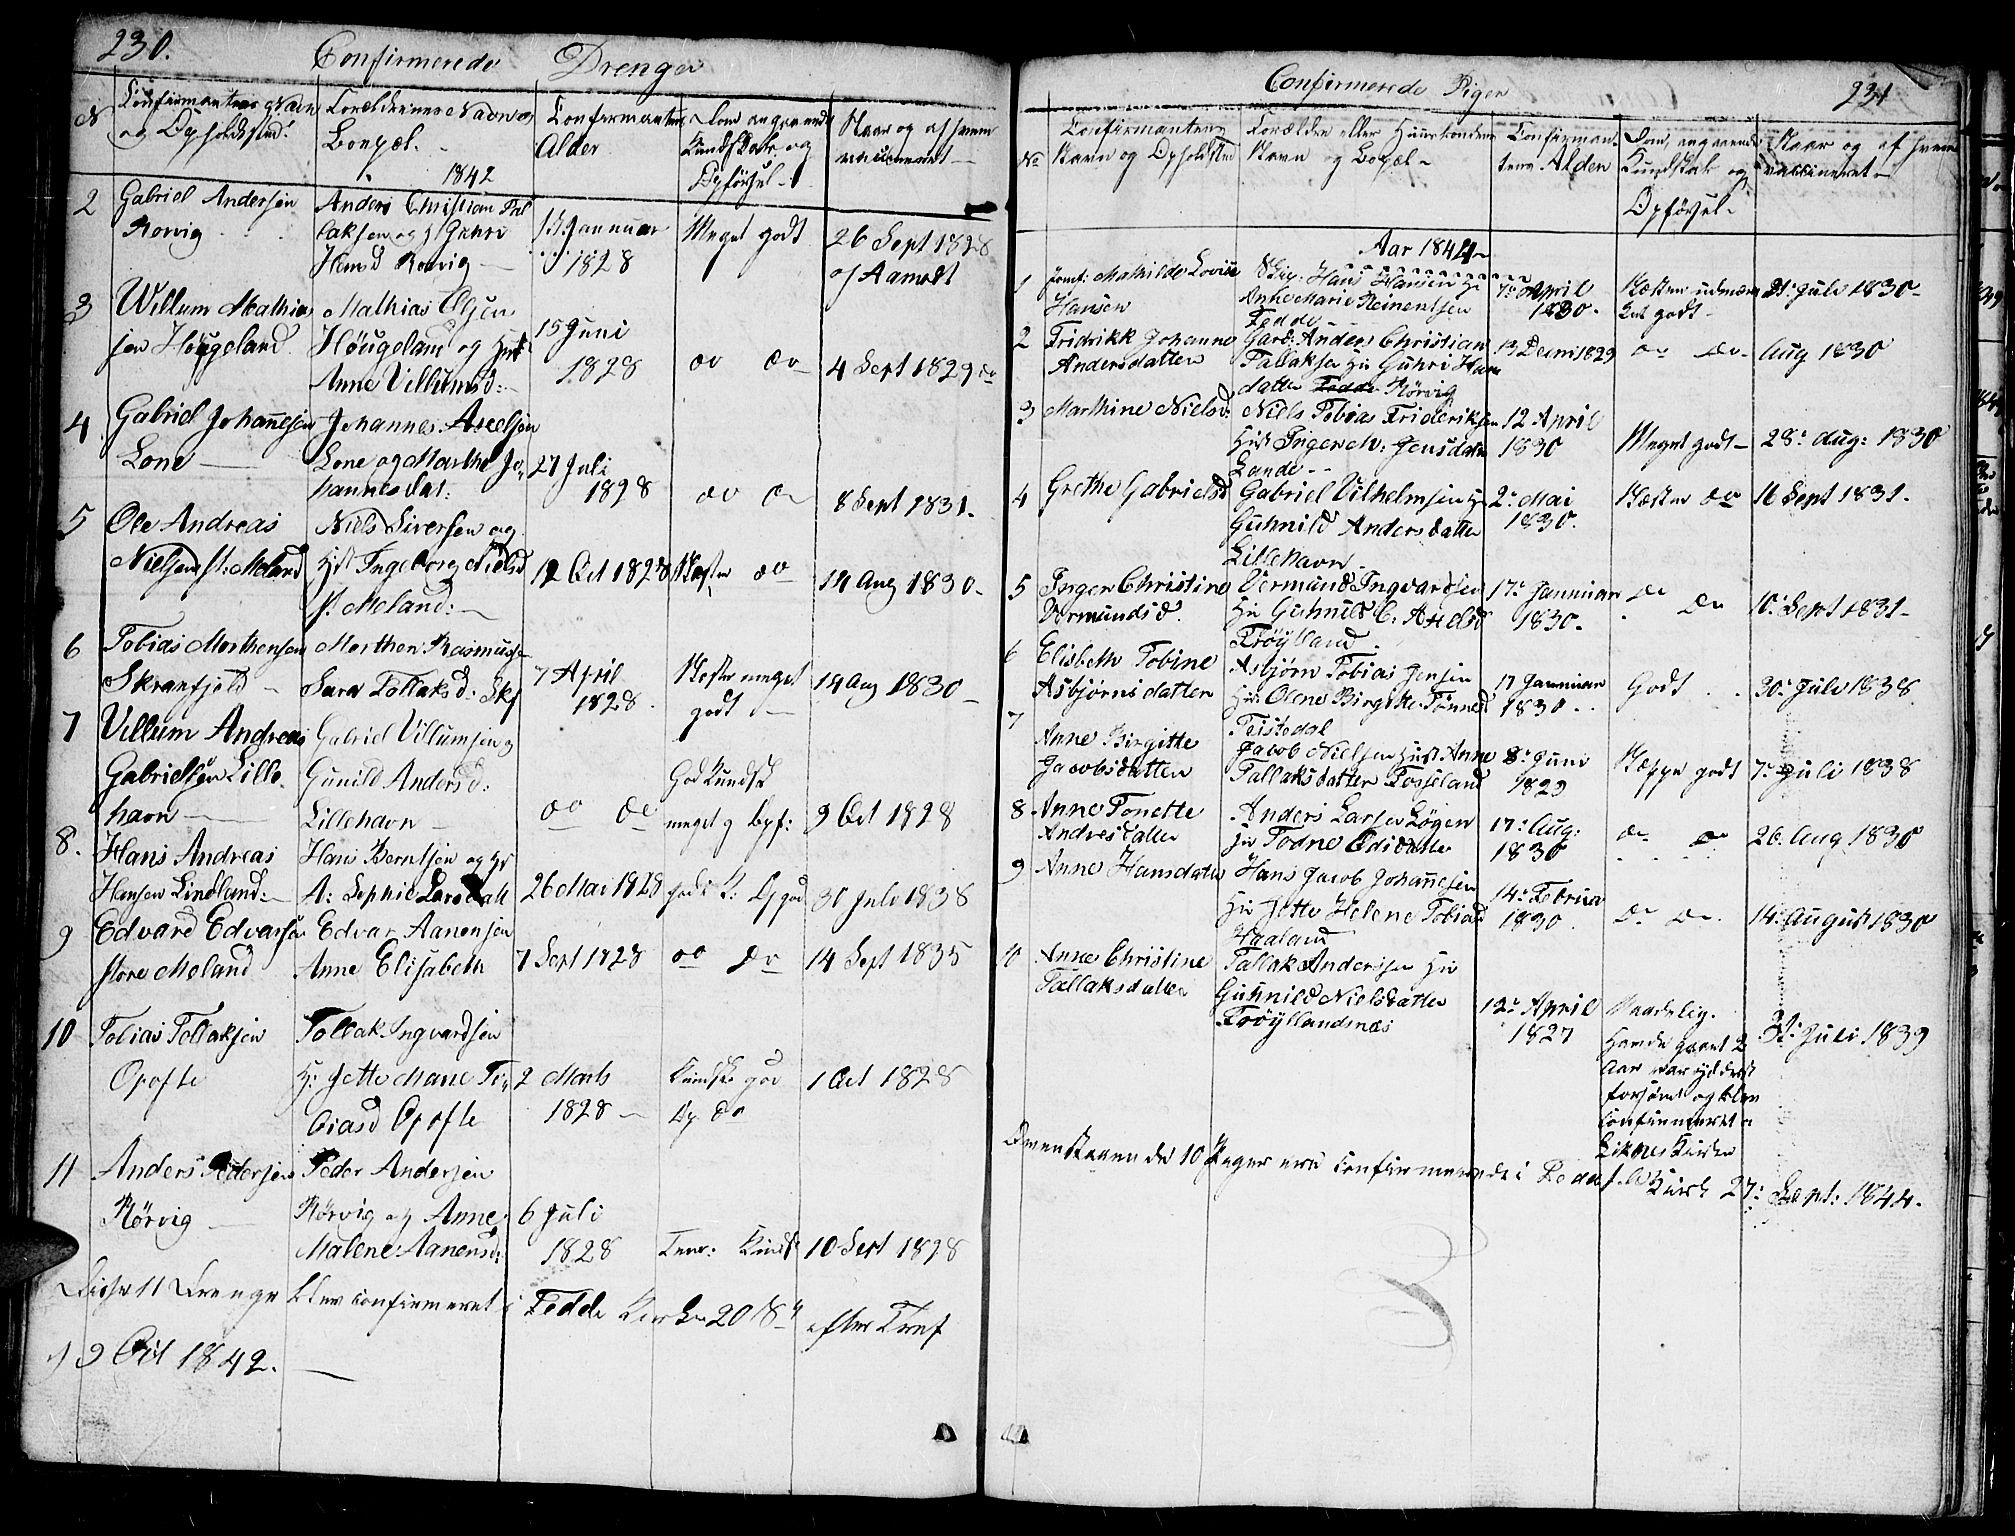 230.
Confirmerede Drenger
N
Confirmantens Navn
og Opholdsted
Forældrenes Navn og
Bopæl.
Confirmantens
Alder
Dom angaaende
Kundskab og
Opførsel
Naar og af hvem
vaccineret
1842
2 Gabriel Andersen
Rørvig
Anders Christian Tal
laksen og H Guhri
Hansd Rørvig
13 Januar
1828
Meget godt
26 Sept 1828
af Aamodt
3 Willum Mathia
sen Høugeland
Mathias Olsen
Høugeland og Hust
Anne Villumsd:
15 Juni
1828
do do
4 Sept 1829 do
4 Gabriel Johannesen
Lone
Johannes Axelsen
Lone og Marthe Jo
hannesdat:
27 Juli
1828
do do
8 Sept 1831.
5 Ole Andreas
Nielsen st: Meland
Niels Siversen og
Hst Ingeborg Nielsd
st. Meland:
12 Oct 1828
Næsten do
14 Aug 1830
6 Tobias Morthensen
Skranfjeld
Morthen Rasmussen
Sara Tollaksd: Skf
7 April
1828
Næsten meget
godt
14 Aug 1830
7 Villum Andreas
Gabrielsen Lille
havn
Gabriel Villumsen og
Gunild Andersd:
Lillehavn
do do
God Kundsk
meget g Opf:
9 Oct 1828
8. Hans Andreas
Hansen Lindland:
Hans Berntsen og Hr
A: Sophie Larsdatt
26 Mai 1828
god K: Of god
30 Juli 1838
9 Edvard Edvarsen
store Meland
Edvar Aanensen
Anne Elisabeth
7 Sept 1828
do do
14 Sept 1835
10 Tobias Tollaksen
Opofte
Tollak Ingvardsen
H: Jette Marie To
biasd Opofte
2 Marts
1828
Kundsk god
Op do
1 Oct 1828
11 Anders Pedersen
Rörvig
Peder Andersen
Rörvig og Anne
Malene Aanensd:
6 Juli
1828
Kundsk
10 Sept 1828
Disse 11 Drenge blev confirmeret i Fedde Kirke 20 S. efter Tref
d 9 Oct 1842.
Confirmerede Piger
231
No
Confirmantens
Navn og Opholdsted
Forældre eller Huusbonders
Navn og Bopæl
Confirman-
tens Alder
Dom, angaaende
Kundskab og
Opförsel
Naar og af hvem
vakkineret
Aar 1844
1 Jomf: Mathilde Lovise
Hansen
Skip. Hans Hansen Hu
Anne Marie Reinertsen
Fedde
7de April
1830.
Næsten udmær
ket godt
21: Juli 1830
2 Fridrikk Johanne
Andersdatter
Gard: Anders Christian
Tallaksen Hu Guhri Hans
datter Fedde Rörvig
13 Decm 1829
do do
Aug 1830
3 Marthine Nielsd:
Niels Tobias Frideriksen
Hust Inger M: Jensdatter
Lande
12 April
1830
Meget godt
28: Aug: 1830
4 Grethe Gabrielsd
Gabriel Vilhelmsen H
Guhnild Andersdatter
Lillehavn
2: Mai
1830.
Næsten do
16 Sept 1831.
5 Inger Christine
Vermundsd.
Vermund Ingvardsen
Hu Guhnild C: Axelsd
Fröylland
17: Januar
1830.
do do
10: Sept 1831
6 Elisbeth Tobine
Asbjörnsdatter
Asbjørn Tobias Jensen
Hu: Olene Birgitte Tønnesd
Teistedal
17 Januar
1830
Godt
30: Juli 1838
7 Anne Birgitte
Jacobsdatter
Jacob Nielsen Hust Anne
Tallaksdatter Fosseland
8: Juni
1829
Næppe godt
7: Juli 1838
8 Anne Tonette
Andresdatter
Anders Larsen Løgen
Hu Todne Edisdatter
17: Aug:
1830
do do
26. Aug 1830
9 Anne Hansdatter
Hans Jacob Johannesen
Hu Jette Helene Tobiasd
Haaland
14: Februar
1830
do do
14: August 1830
10 Anne Christine
Tallaksdatter
Tallak Andersen Hu
Guhnild Nielsdatter
Fröyllandsnæs
12: April
1827
Maadelig.
Havde gaaet 2
Aar
forsömt og blev
confirmeret i
Liknes Kirke
31: Juli 1839
Ovenstaaende 10 Piger ere confirmerede i Fedde Kirke 27: Sept: 1844.